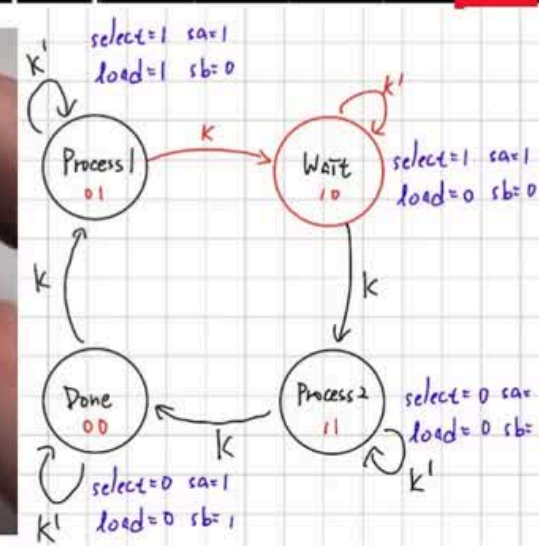 select=1 sa=1
load=1 sb=0
k'
Process1
01
k
k'
Wait
10
select=1 sa=1
load=0 sb=0
k
k
Done
00
k
Process2
11
select=0 sa=
load=0 sb=
k'
k'
select=0 sa=1
load=0 sb=1